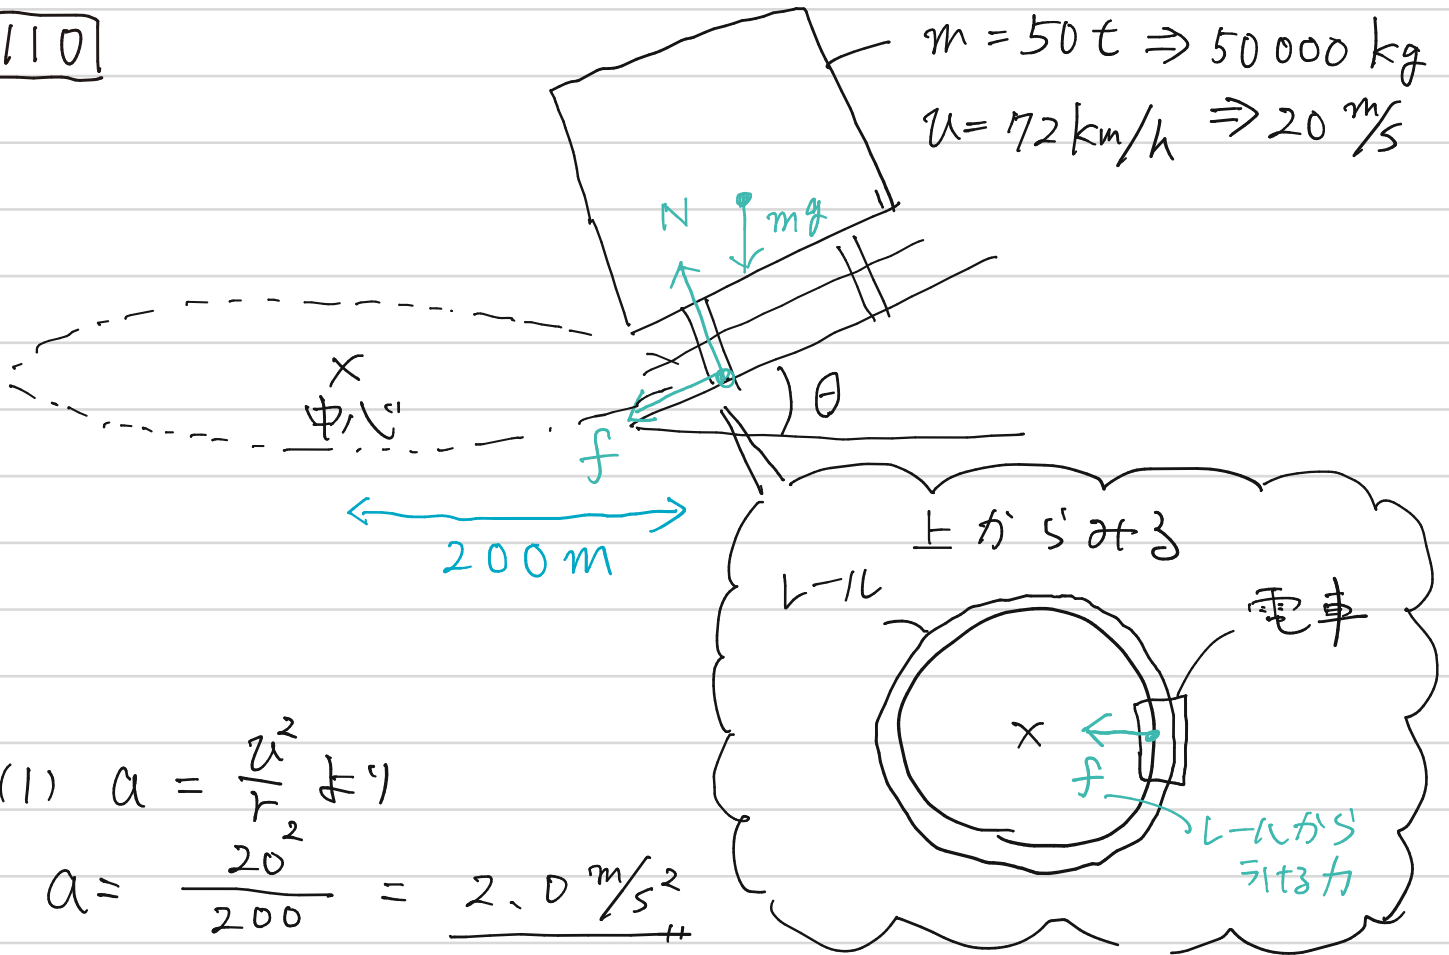 110
m = 50t ⇒ 50000kg
v = 72km/h ⇒ 20m/s
N
mg
×
中心
θ
f
200m
上からみる
レール
電車
×
f
レールから
うける力
(1) a = v²/r より
a = 20²/200 = 2.0m/s²